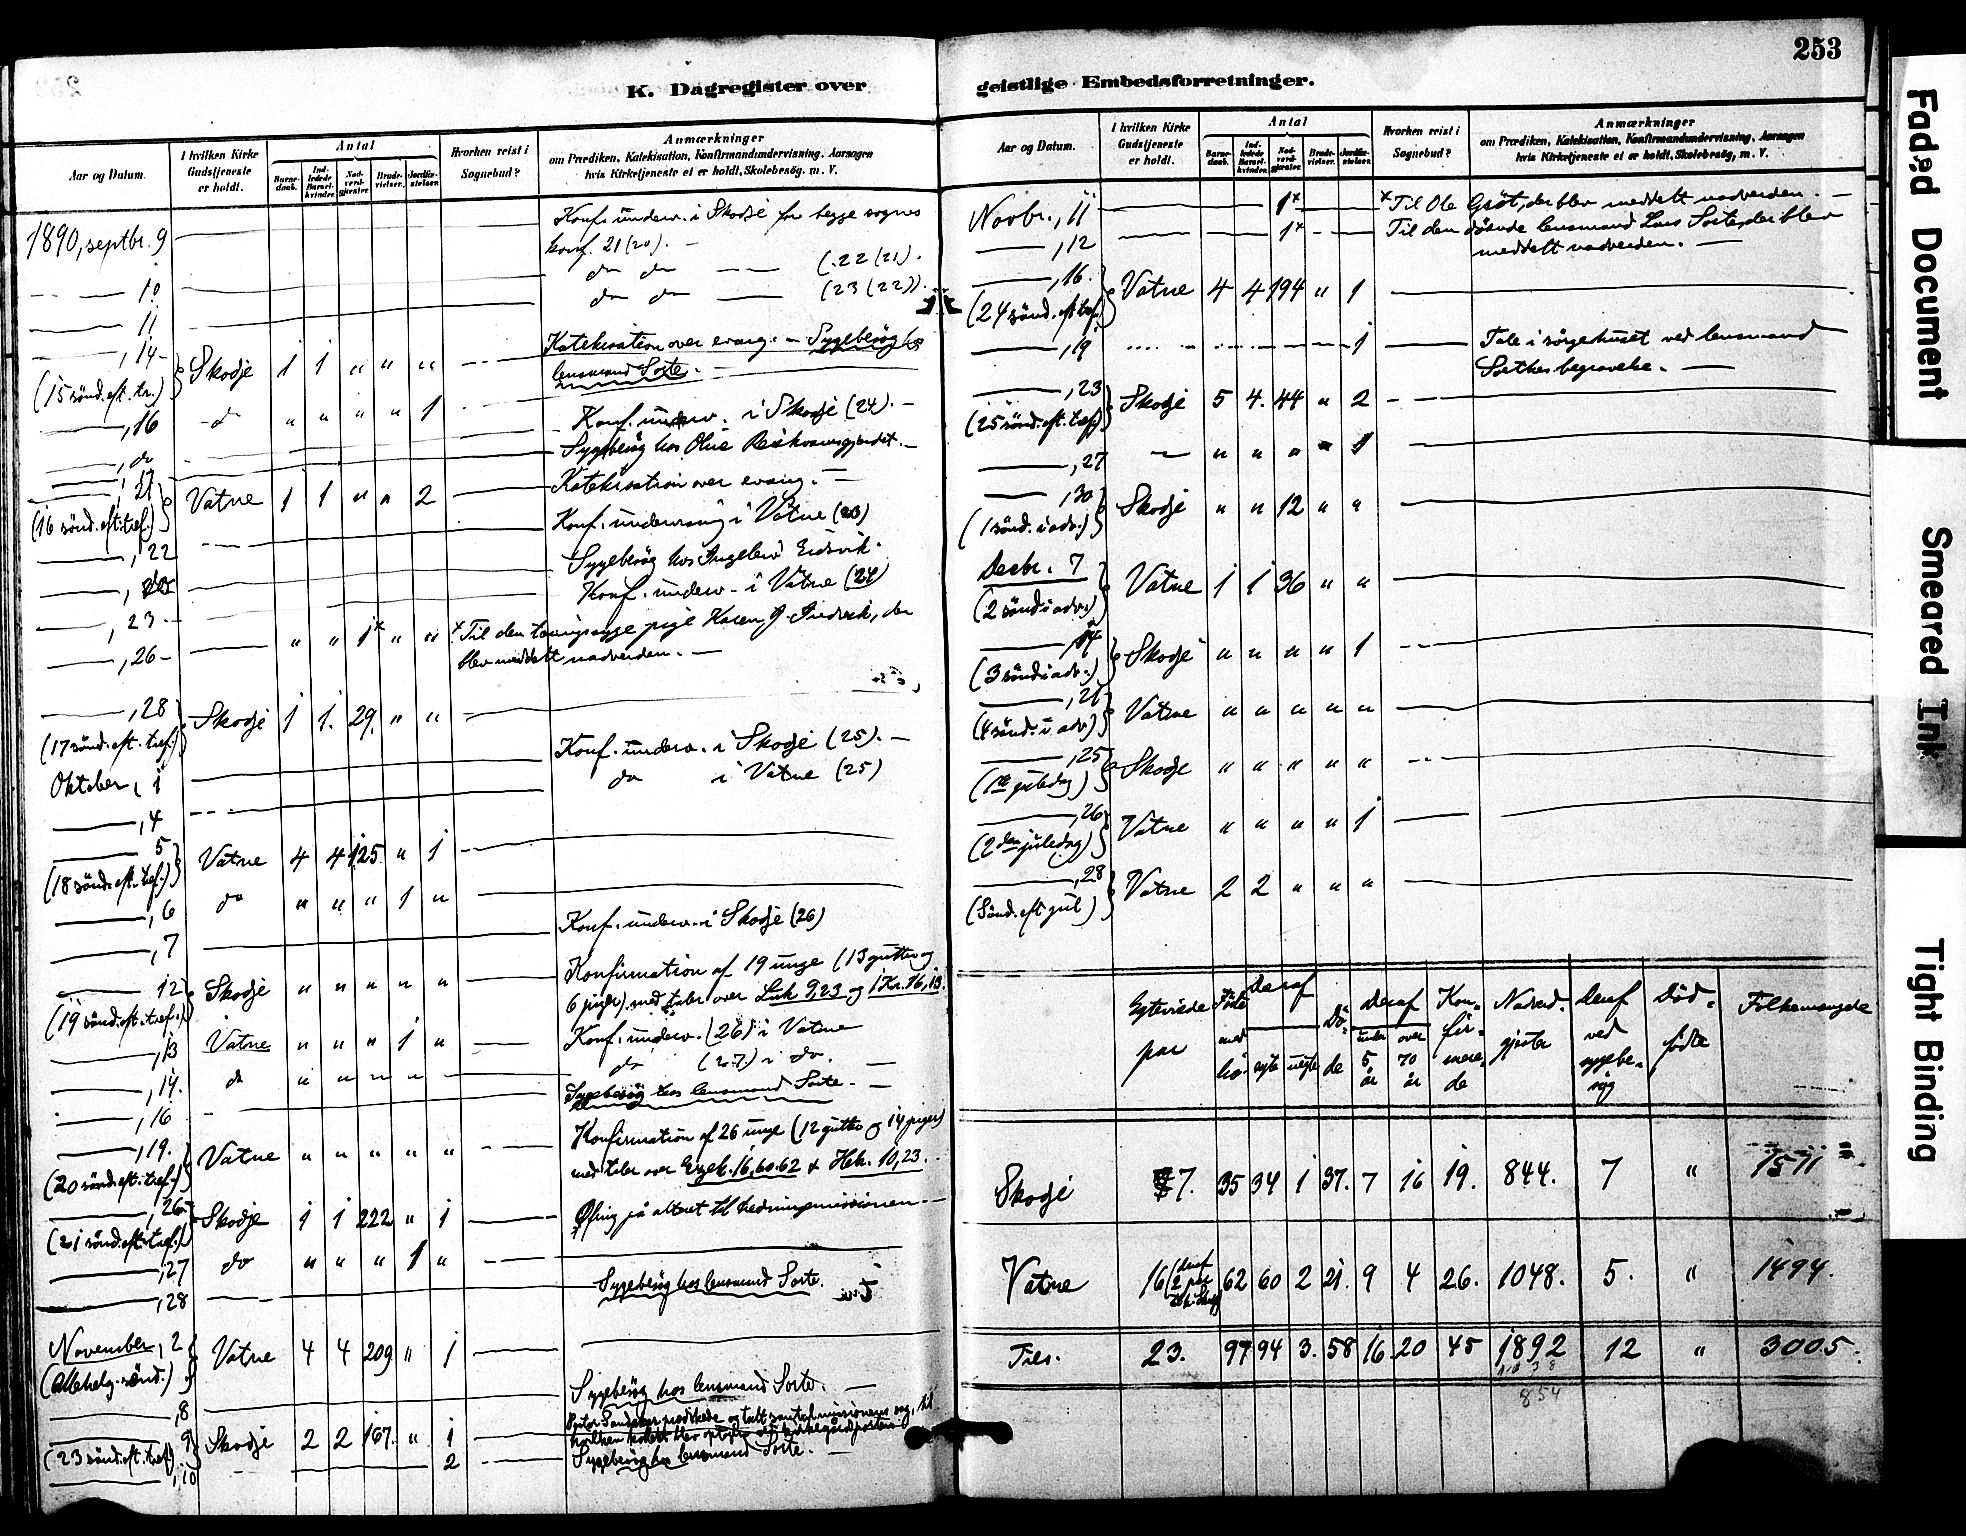 253
K. Dagregister over geistlige Embedsforretninger.
Aar og Datum.
I hvilken Kirke Gudstjeneste er holdt.
Antal
Barne-daab.
Ind-ledede Barsel-kvinder.
Nad-verd-gjester
Brude-vielser.
Jordfæ-stelser.
Hvorhen reist i Sognebud?
Anmærkninger
om Prædiken, Katekisation, Konfirmandundervisning, Aarsagen
hvis Kirketjeneste ei er holdt, Skolebesøg, m. V.
1890, septbr. 9 Konf. underv. i Skodje for begge sognes
konf. 21 (20). —
10 do do — (22 (21).
11 do do — (23 (22)).
, 14 - (15 sönd. eft. tr.) Skodje 1 1 " " " Katekisation over evang. - Sygebesög hos
lensmand Sorte. -
, 16 do " " " " 1 Konf. underv. i Skodje (24). -
, do Sygebesög hos Oline
, 21 (16 sönd. eft. tref.) Vatne 1 1 " " 2 Katekisation over evang. -
, 22 Konf. underv. i Vatne (23)
, do Sygebesög hos Ingeleiv Eidsvik.
, 23 - Konf. underv. i Vatne (24)
, 26 - " " 1x " " x Til den pige Karen J. , der
blev meddelt nadverden. -
, 28 (17 sönd. eft. tref.) Skodje 1 1. 29. " "
Oktober, 1 Konf. underv. i Skodje (25). -
, 4 do i Vatne (25)
5 (18 sönd. eft. tref.) Vatne 4 4 125 " 1
, 6 do " " " 1 "
, 7 Konf. underv. i Skodje (26)
12 (19 sönd. eft. tref.) Skodje " " " " " Konfirmation af 19 unge (13 gutter og
6 piger) med taler over Luk 9,23 og 1 Kr. 16,13.
, 13 Vatne " " " 1 " Konf. underv. (26) i Vatne
, 14. do " " " " do (27) i do.
, 16 Sygebesög hos lensmand Sorte. -
, 19. (20 sönd. eft. tref.) Vatne " " " " " Konfirmation af 26 unge (12 gutter og 14 piger)
med taler over Ezek. 16,60.62 & Heb. 10,23.
, 26 (21 sönd. eft. tref.) Skodje 1 1 222 " 1 Ofring på alteret til hedningemissionen -
, 27 do " " " 1 "
, 28 Sygebesög hos lensmand Sorte.
November, 2 (Allehelg. sönd.) Vatne 4 4 209 " 1
, 8 Sygebesög hos lensmand Sorte. -
, 9 (23 sönd. eft. tref.) Skodje 2 2 167. " 1 prædikede og
, 10 2 Sygebesög hos lensmand Sorte. -
Aar og Datum.
I hvilken Kirke Gudstjeneste er holdt.
Antal
Barne-daab.
Ind-ledede Barsel-kvinder.
Nad-verd-gjester
Brude-vielser.
Jordfæ-stelser.
Hvorhen reist i Sognebud?
Anmærkninger
om Prædiken, Katekisation, Konfirmandundervisning, Aarsagen
hvis Kirketjeneste ei er holdt, Skolebesøg, m. V.
Novbr., 11 1x x Til Ole Gröt, der blev meddelt nadverden. -
, 12 1x Til den döende lensmand Lars Sorte, der blev
meddelt nadverden. -
, 16. (24 sönd. eft. tref.) Vatne 4 4 194 " 1
, 19 1 Tale i sörgehuset ved lensmand
Sortes begravelse. -
, 23 (25 sönd. eft. tref.) Skodje 5 4. 44 " 2
, 27 " " " " 1
, 30 (1 sönd. i adv.) Skodje " " 12 " "
Decbr. 7 (2 sönd i adv.) Vatne 1 1 36 " "
, 14 (3 sönd i adv.) Skodje " " " " 1
, 21 (4 sönd. i adv) Vatne " " " " "
, 25 (1ste juledag) Skodje " " " " "
, 26 (2den juledag) Vatne " " " " 1
, 28 (Sönd. eft jul) Vatne 2 2 " " "
Egteviede par
Födte med
Deraf
egte
uegte
Dö-de
Deraf
under 5 år
over 70 år
Kon-fir-mere-de
Nadverd. gjester
Deraf ved sygebe-sög
Död-födte
Folkemængde
Skodje 7. 35 34 1 37. 7 16 19. 844. 7 " 1511
Vatne 16 (deraf 2 par 62 60 2 21. 9 4 26. 1048. 5. " 1494.
Tils. 23. 97 94 3. 58 16. 20 45 1892 12 " 3005.
854
Faded Document
Smeared Ink
Tight Binding